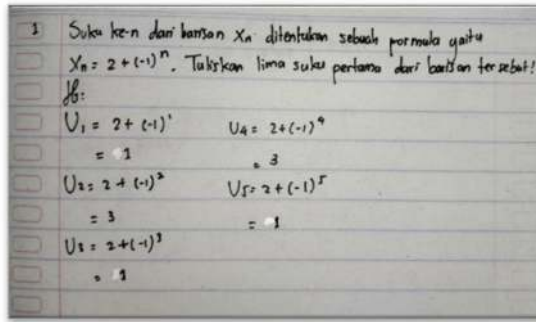 1 Suku ke-n dari barisan Xn ditentukan sebuah formula yaitu
Xn = 2 + (-1)^n. Tuliskan lima suku pertama dari barisan tersebut!
Jb:
U1 = 2 + (-1)^1
= 1
U2 = 2 + (-1)^2
= 3
U3 = 2 + (-1)^3
= 1
U4 = 2 + (-1)^4
= 3
U5 = 2 + (-1)^5
= 1